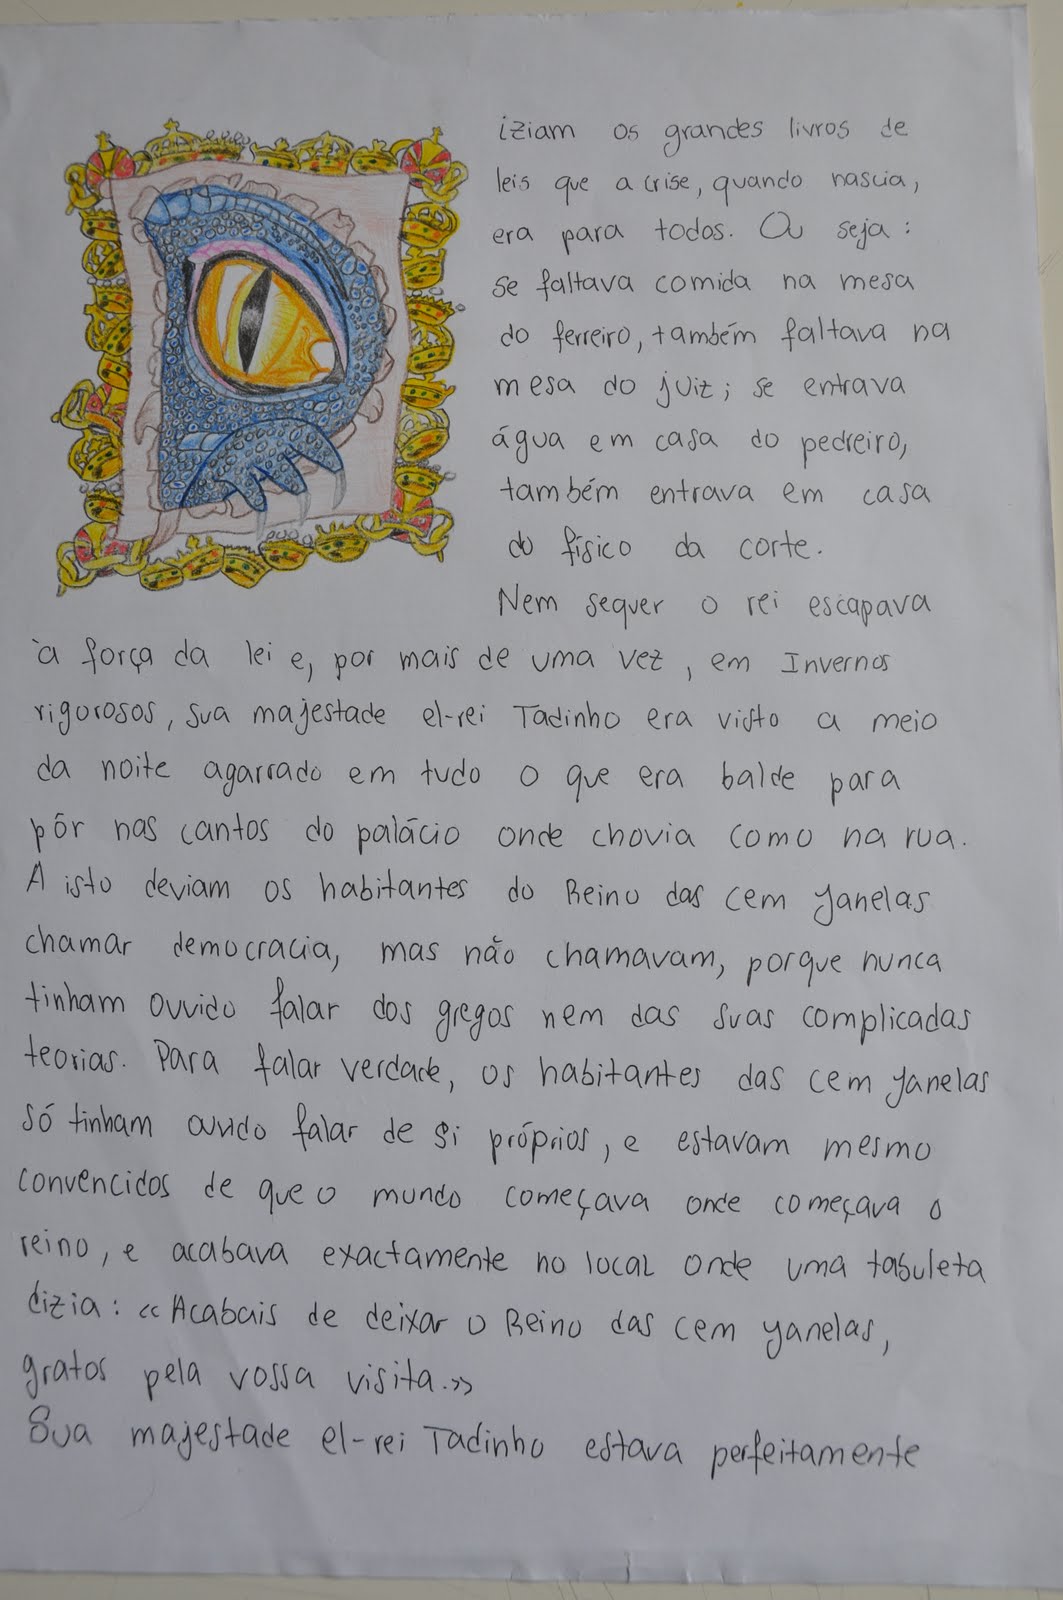 iziam os grandes livros de
leis que a crise, quando nascia,
era para todos. Ou seja:
se faltava comida na mesa
do ferreiro, também faltava na
mesa do juiz; se entrava
água em casa do pedreiro,
também entrava em casa
do físico da corte.
Nem sequer o rei escapava
à força da lei e, por mais de uma vez, em Invernos
rigorosos, sua majestade el-rei Tadinho era visto a meio
da noite agarrado em tudo o que era balde para
pôr nas cantos do palácio onde chovia como na rua.
A isto deviam os habitantes do Reino das cem Janelas
chamar democracia, mas não chamavam, porque nunca
tinham ouvido falar dos gregos nem das suas complicadas
teorias. Para falar verdade, os habitantes das cem Janelas
só tinham ouvido falar de si próprios, e estavam mesmo
convencidos de que o mundo começava onde começava o
reino, e acabava exactamente no local onde uma tabuleta
dizia: «Acabais de deixar o Reino das cem Janelas,
gratos pela vossa visita.»
Sua majestade el-rei Tadinho estava perfeitamente